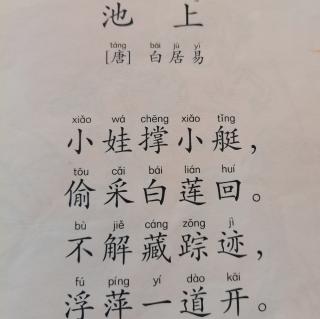 池上
táng bái jū yì
[唐] 白居易
xiǎo wá chēng xiǎo tǐng
小娃撑小艇，
tōu cǎi bái lián huí
偷采白莲回。
bù jiě cáng zōng jì
不解藏踪迹，
fú píng yí dào kāi
浮萍一道开。